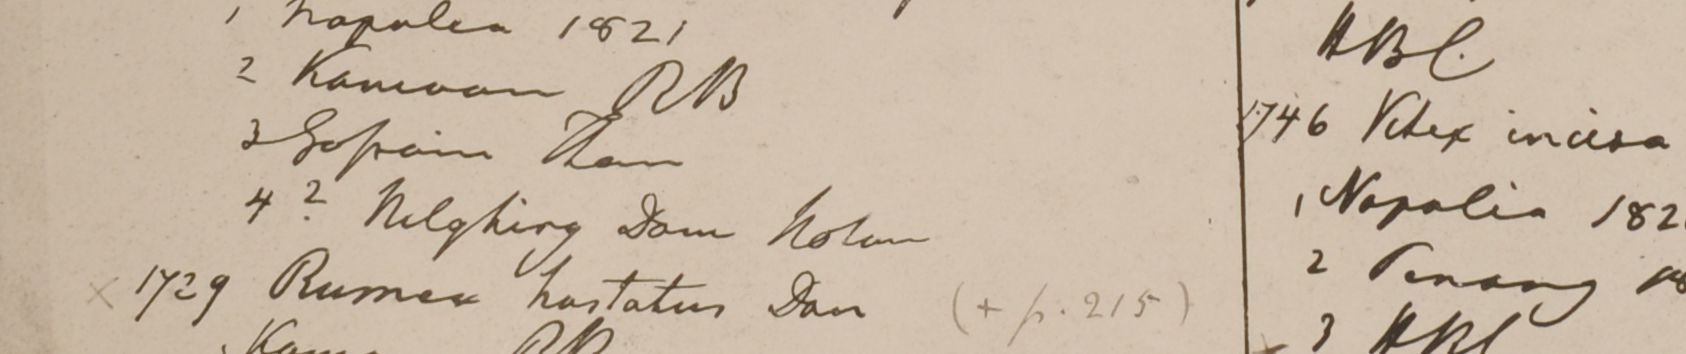 1 Napalia 1821
2 Kamoon RB
3 Gossain Than
4 ? Nilghiry Dom Noton
× 1729 Rumex hastatus Don (+ p. 215)
RB
HBC.
1746 Vitex incisa
1 Napalia 182
2 Penang
3 HBC